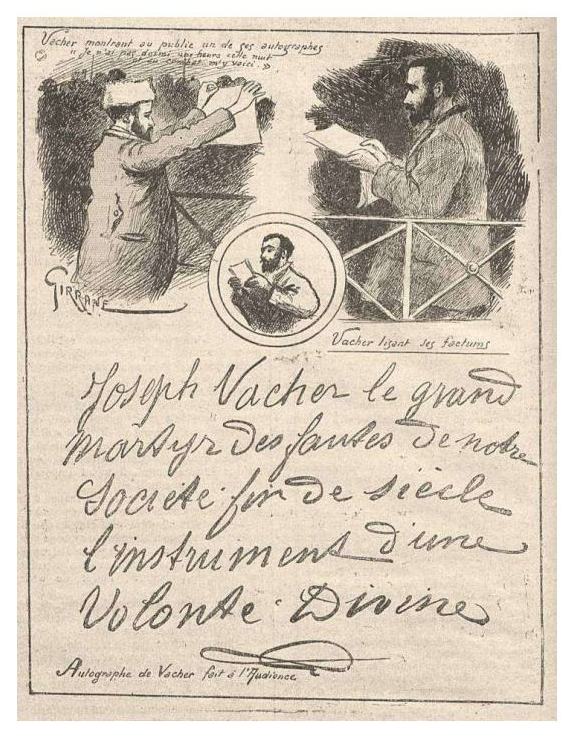 Vacher montrant au public un de ses autographes
"Je n'ai pas dormi une heure cette nuit
combat m'y voici."
GIRRANE
Vacher lisant ses factums
Joseph Vacher le grand
martyr des fautes de notre
Société fin de siècle
l'instrument d'une
Volonté Divine
Autographe de Vacher fait à l'Audience